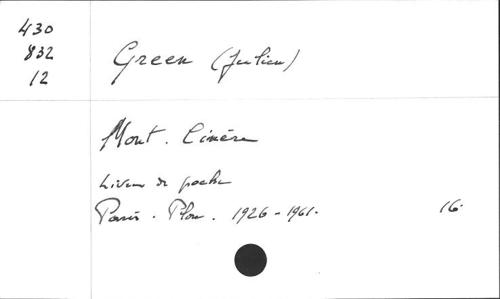 430
832
12
Green (Julien)
Mont. Cinère
Livre de poche
Paris. Plon. 1926 - 1961. 16.